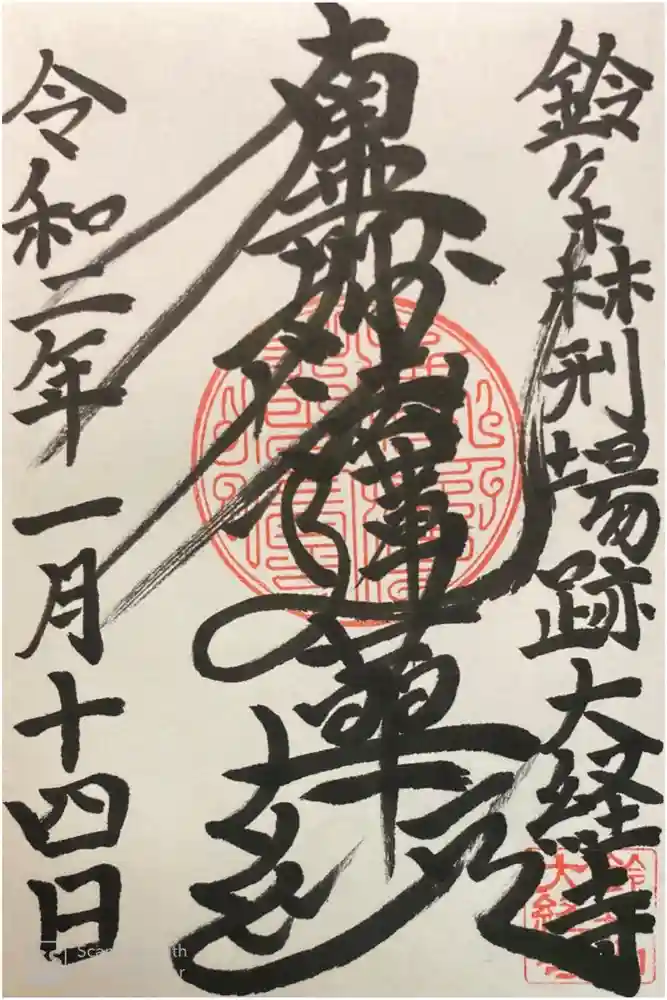 鈴ヶ森刑場跡大経寺
南無妙法蓮華経
令和二年一月十四日